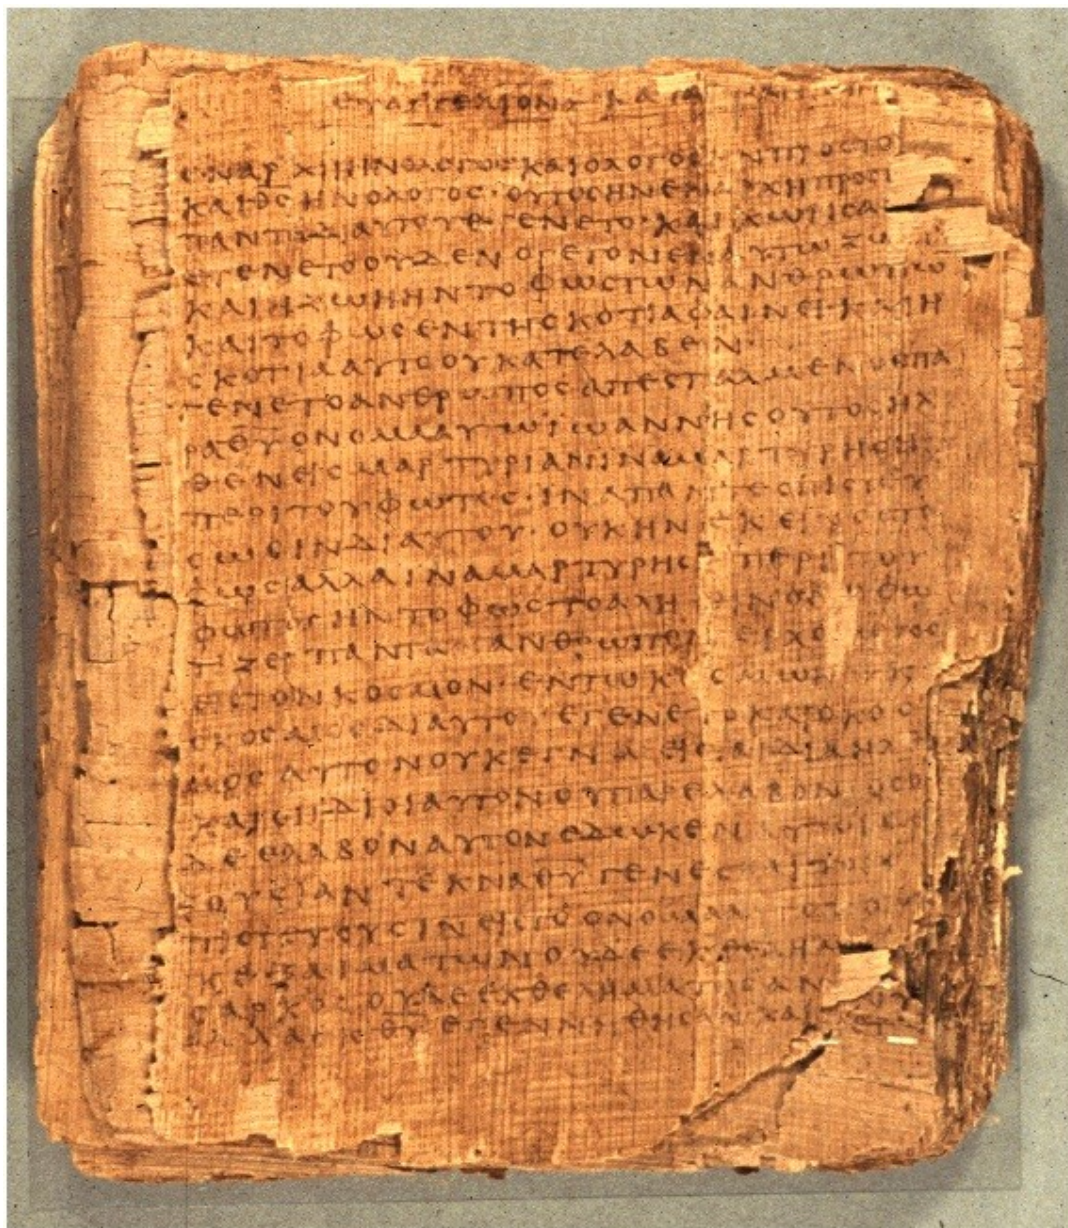 ΕΥΑΓΓΕΛΙΟΝ ΚΑΤΑ
ΕΝΑΡΧΗΗΝΟΛΟΓΟΣΚΑΙΟΛΟΓΟΣ ΗΝΠΡΟΣΤΟ
ΚΑΙΘ̅Σ̅ΗΝΟΛΟΓΟΣ·ΟΥΤΟΣΗΝΕΝΑΡΧΗΠΡΟΣ
ΠΑΝΤΑΔΙΑΥΤΟΥΕΓΕΝΕΤΟ·ΚΑΙΧΩΡΙΣΑ
ΕΓΕΝΕΤΟΟΥΔΕΝΟΓΕΓΟΝΕΝΕΝΑΥΤΩΖΩ
ΚΑΙΗΖΩΗΗΝΤΟΦΩΣΤΩΝΑΝΘΡΩΠΩ
ΚΑΙΤΟΦΩΣΕΝΤΗΣΚΟΤΙΑΦΑΙΝΕΙ·ΚΑΙΗ
ΣΚΟΤΙΑΑΥΤΟΟΥΚΑΤΕΛΑΒΕΝ·
ΕΓΕΝΕΤΟΑΝΘΡΩΠΟΣΑΠΕΣΤΑΛΜΕΝΟΣΠΑ
ΡΑΘ̅Υ̅ΟΝΟΜΑΑΥΤΩΪΩΑΝΝΗΣΟΥΤΟΣΗΛ
ΘΕΝΕΙΣΜΑΡΤΥΡΙΑΝΙΝΑΜΑΡΤΥΡΗΣΗ
ΠΕΡΙΤΟΥΦΩΤΟΣ·ΙΝΑΠΑΝΤΕΣΠΙΣΤΕΥ
ΣΩΣΙΝΔΙΑΥΤΟΥ·ΟΥΚΗΝΕΚΕΙΝΟΣΤΟ
ΦΩΣΑΛΛΑΙΝΑΜΑΡΤΥΡΗΣΗ ΠΕΡΙΤΟΥ
ΦΩΤΟΣΗΝΤΟΦΩΣΤΟΑΛΗΘΙΝΟΝΟΦΩ
ΤΙΖΕΙΠΑΝΤΑΑΝΘΡΩΠΟΝΕΡΧΟΜΕΝΟΝ
ΕΙΣΤΟΝΚΟΣΜΟΝ·ΕΝΤΩΚΟΣΜΩΗΝΚΑΙ
ΟΚΟΣΜΟΣΔΙΑΥΤΟΥΕΓΕΝΕΤΟΚΑΙΟΚΟΣ
ΜΟΣΑΥΤΟΝΟΥΚΕΓΝΩ·ΕΙΣΤΑΙΔΙΑΗΛΘΕ
ΚΑΙΟΙΙΔΙΟΙΑΥΤΟΝΟΥΠΑΡΕΛΑΒΟΝ·ΟΣΟΙ
ΔΕΕΛΑΒΟΝΑΥΤΟΝΕΔΩΚΕΝΑΥΤΟΙΣΕ
ΞΟΥΣΙΑΝΤΕΚΝΑΘ̅Υ̅ΓΕΝΕΣΘΑΙΤΟΙΣ
ΠΙΣΤΕΥΟΥΣΙΝΕΙΣΤΟΟΝΟΜΑΑΥΤΟΥΟΙ
ΚΕΞΑΙΜΑΤΩΝΟΥΔΕΕΚΘΕΛΗΜΑ
ΣΑΡΚΟΣΟΥΔΕΕΚΘΕΛΗΜΑΤΟΣΑΝ
ΑΛΛΑΕΚΘ̅Υ̅ΕΓΕΝΝΗΘΗΣΑΝΚΑΙ